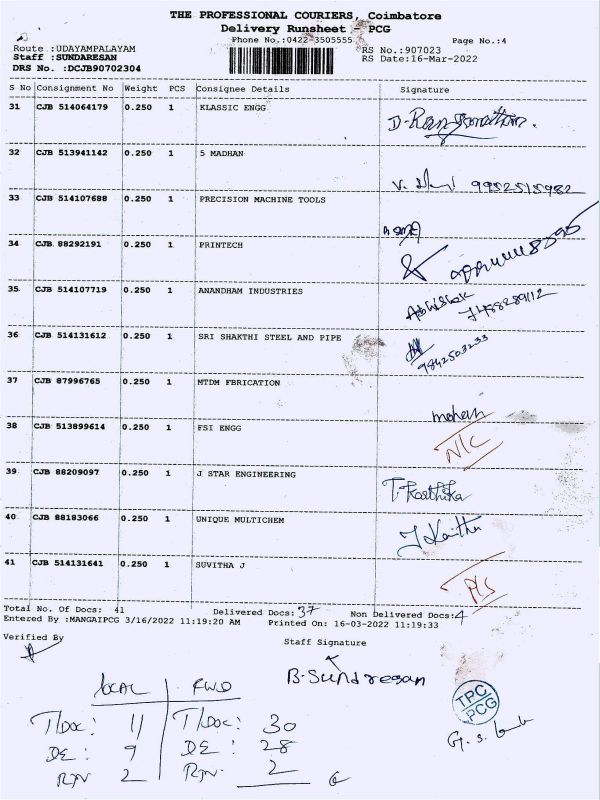 THE PROFESSIONAL COURIERS, Coimbatore
Delivery Runsheet - PCG
Phone No.:0422-3505555 Page No.:4
Route :UDAYAMPALAYAM RS No.:907023
Staff :SUNDARESAN RS Date:16-Mar-2022
DRS No. :DCJB90702304
S No Consignment No Weight PCS Consignee Details Signature
31 CJB 514064179 0.250 1 KLASSIC ENGG
D. Ranganathan.
32 CJB 513941142 0.250 1 S MADHAN
9952515982
33 CJB 514107688 0.250 1 PRECISION MACHINE TOOLS
34 CJB 88292191 0.250 1 PRINTECH
35 CJB 514107719 0.250 1 ANANDHAM INDUSTRIES
Abhishek
36 CJB 514131612 0.250 1 SRI SHAKTHI STEEL AND PIPE
9842503233
37 CJB 87996765 0.250 1 MTDM FBRICATION
mohan
38 CJB 513899614 0.250 1 FSI ENGG
N/C
39 CJB 88209097 0.250 1 J STAR ENGINEERING
T. Karthika
40 CJB 88183066 0.250 1 UNIQUE MULTICHEM
41 CJB 514131641 0.250 1 SUVITHA J
Total No. Of Docs: 41 Delivered Docs: 37 Non Delivered Docs: 4
Entered By :MANGAIPCG 3/16/2022 11:19:20 AM Printed On: 16-03-2022 11:19:33
Verified By Staff Signature
B. Sundresan
LOCAL FWD
T/Doc: 11 T/Doc: 30
DE: 9 DE: 28
RTN 2 RTN. 2
TPC
PCG